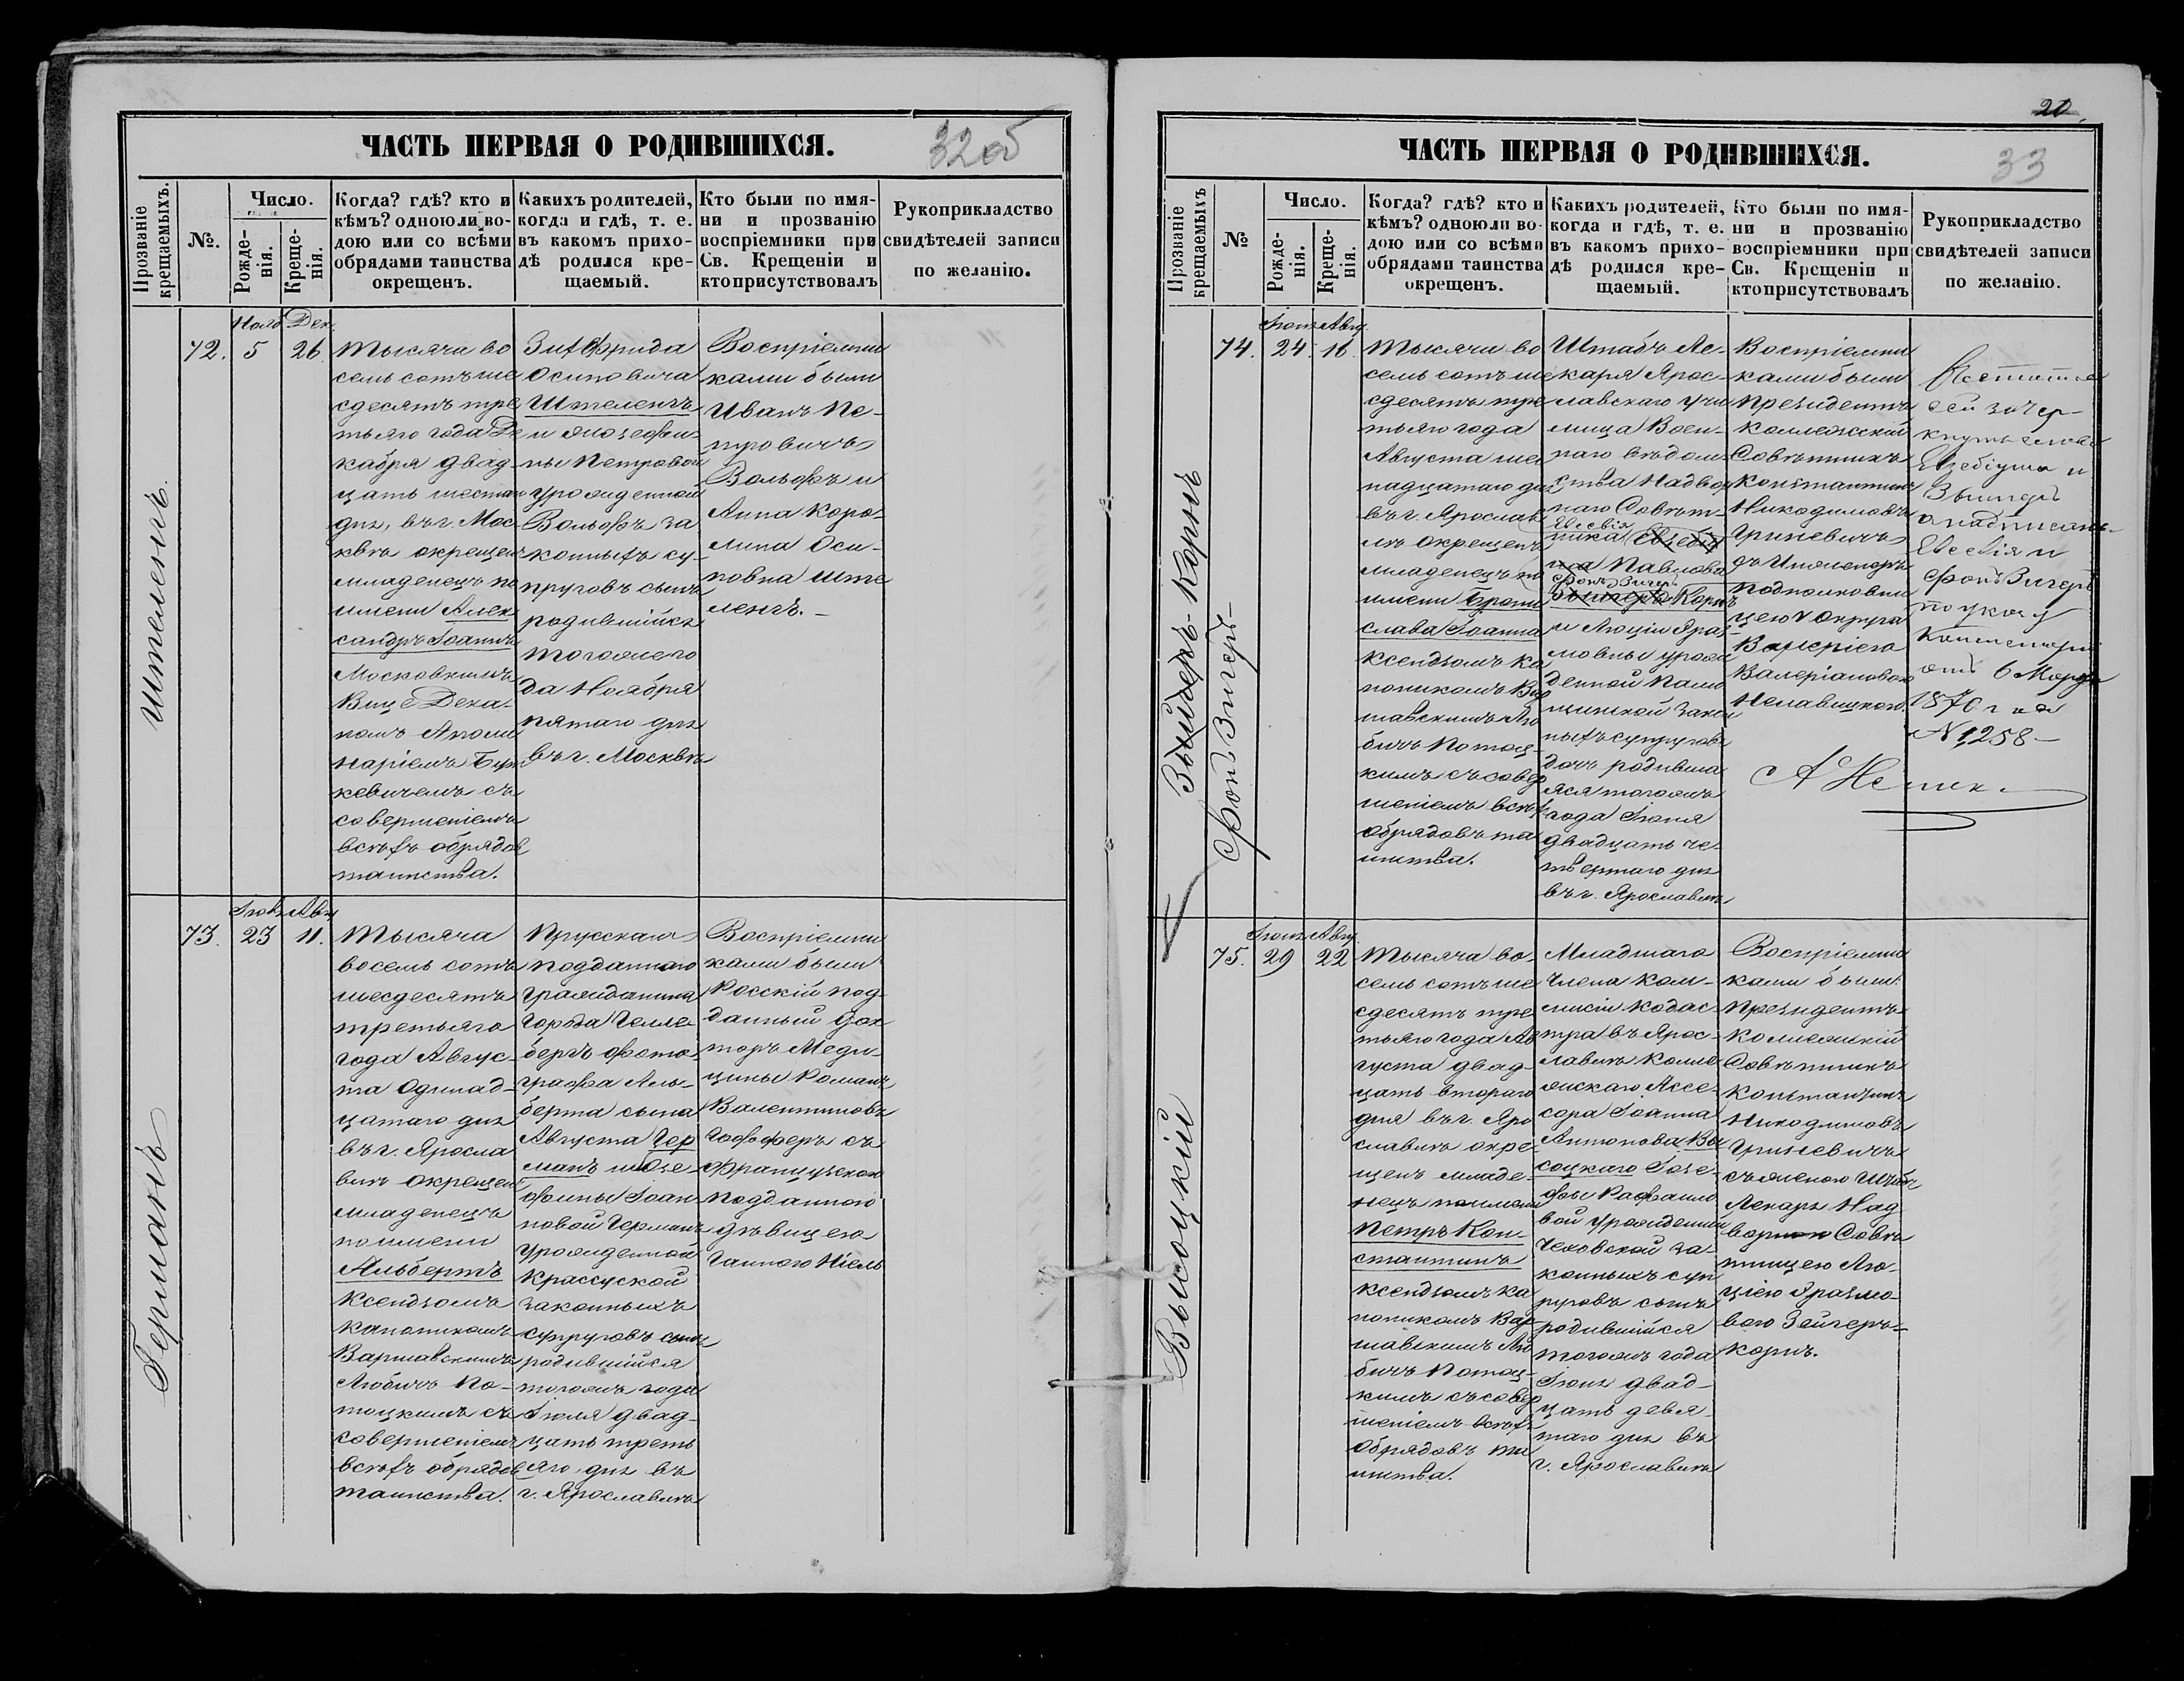 ЧАСТЬ ПЕРВАЯ О РОДИВШИХСЯ.
32об
Прозваніе крещаемыхъ.
№.
Число.
Рожденія.
Крещенія.
Когда? гдѣ? кто и
кѣмъ? одноюли во-
дою или со всѣми
обрядами таинства
окрещенъ.
Какихъ родителей,
когда и гдѣ, т. е.
въ какомъ прихо-
дѣ родился кре-
щаемый.
Кто были по имя-
ни и прозванію
воспріемники при
Св. Крещеніи и
ктоприсутствовалъ
Рукоприкладство
свидѣтелей записи
по желанію.
Штеленгъ.
72.
Нояб
5
Дек.
26
Тысяча во
семь сотъ ше
сдесятъ тре
тьяго года Де
кабря двад
цать шестаго
дня, въ г. Мос
квѣ окрещенъ
младенецъ по
имени Алек
сандръ Іоаннъ
Московскимъ
Вице Дека-
номъ Аполи
наріемъ
кевичемъ съ
совершеніемъ
всѣхъ обрядов
таинства.
Зигфрида
Осиповича
Штеленгъ
и Іозефи-
ны Петровой
урожденной
Вольфъ за
конныхъ су-
пруговъ сынъ
родившійся
тогожего
да Ноября
пятаго дня
въ г. Москвѣ
Воспріемни
ками были
Иванъ Пе-
тровичъ
Вольфъ и
Анна Каро-
лина Оси-
повна Ште
ленгъ.
Германъ
73.
Іюля
23
Авг
11.
Тысяча
восемь сотъ
шесдесятъ
третьяго
года Авгус-
та Одинад-
цатаго дня
въ г. Яросла
влѣ окрещен
младенецъ
по имени
Альбертъ
Ксендзомъ
Каноникомъ
Варшавскимъ
Любичъ По-
тоцкимъ съ
совершеніемъ
всѣхъ обрядов
таинства.
Прусскаго
подданнаго
гражданина
города
бергъ фото-
графа Аль-
берта сына
Августа Гер
манъ и Юзе-
фины Іоан-
новой Германъ
урожденной
Крассуской
законныхъ
супруговъ сынъ
родившійся
тогожъ года
Іюля двад-
цать треть
яго дня въ
г. Ярославлѣ
Воспріемни
ками были
Росскій под
данный док
торъ Меди-
цины Романъ
Валентиновъ
съ
Французскою
подданною
дѣвицею
ЧАСТЬ ПЕРВАЯ О РОДИВШИХСЯ.
20
33
Прозваніе крещаемыхъ
№
Число.
Рожденія.
Крещенія.
Когда? гдѣ? кто и
кѣмъ? одноюли во-
дою или со всѣми
обрядами таинства
окрещенъ.
Какихъ родителей,
когда и гдѣ, т. е.
въ какомъ прихо-
дѣ родился кре-
щаемый.
Кто были по имя-
ни и прозванію
воспріемники при
Св. Крещеніи и
ктоприсутствовалъ
Рукоприкладство
свидѣтелей записи
по желанію.
Корнъ
фонъ Зигеръ
74.
Іюня
24
Авг.
16.
Тысяча во
семь сотъ ше
сдесятъ тре
тьяго года
Августа шес
надцатаго дня
въ г. Ярослав
лѣ окрещенъ
младенецъ по
имени Брони
слава Іоанна
Ксендзомъ Ка
ноникомъ Вар
шавскимъ Лю
бичъ Потоц-
кимъ съ совер
шеніемъ всѣхъ
обрядовъ та
инства.
Штабъ Ле-
каря Ярос-
лавскаго учи
лища Воен-
наго вѣдом-
ства Надвор
наго Совѣт-
Евсевія
ника
Павлова
фонъ Зигеръ
Корнъ
и Люціи Ераз-
мовны урож
денной
закон
ныхъ супруговъ
дочь родивша
яся тогожъ
года Іюня
двадцать че-
твертаго дня
въ г. Ярославлѣ
Воспріемни
ками были
Президентъ
Коллежскій
Совѣтникъ
Константинъ
Никодимовъ
Гриневичъ
съ
Подполковни
цею Округа
Валеріею
Валеріановою
Ненавицкою.
сей зачер-
кнуты слова
Евзебіуша и
а надписано
Евсевія и
фонъ Зигеръ
по указу
Консисторіи
отъ 6 Марта
1870 года
N 1258-
75.
Іюня
29
Авг.
22
Высоцкій
Тысяча во-
семь сотъ ше
сдесятъ тре
тьяго года Ав
густа двад-
цать втораго
дня въ г. Яро
славлѣ окре-
щенъ младе-
нецъ по имени
Петръ Кон-
стантинъ
Ксендзомъ Ка
ноникомъ Вар
шавскимъ Лю
бичъ Потоц-
кимъ съ совер
шеніемъ всѣхъ
обрядовъ та
инства.
Младшаго
Члена Ком-
мисіи Кадас
тра въ Ярос-
лавлѣ Колле
жскаго Ассе-
сора Іоанна
Антонова Вы
соцкаго Іозе-
фы Рафаило
вой урожденной
Чеховской за-
конныхъ суп
руговъ сынъ
родившійся
тогожъ года
Іюня двад-
цать девя
таго дня въ
г. Ярославлѣ
Воспріемни
ками были:
Президентъ
Коллежскій
Совѣтникъ
Константинъ
Никодимовъ
Гриневичъ
съ женою Штабъ
Лекаря Над
ворнаго Совѣ
тницею Лю-
ціею Эразмо-
вою Зейгеръ-
Корнъ.